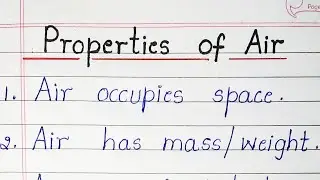 Properties of Air
1. Air occupies space.
2. Air has mass/weight.